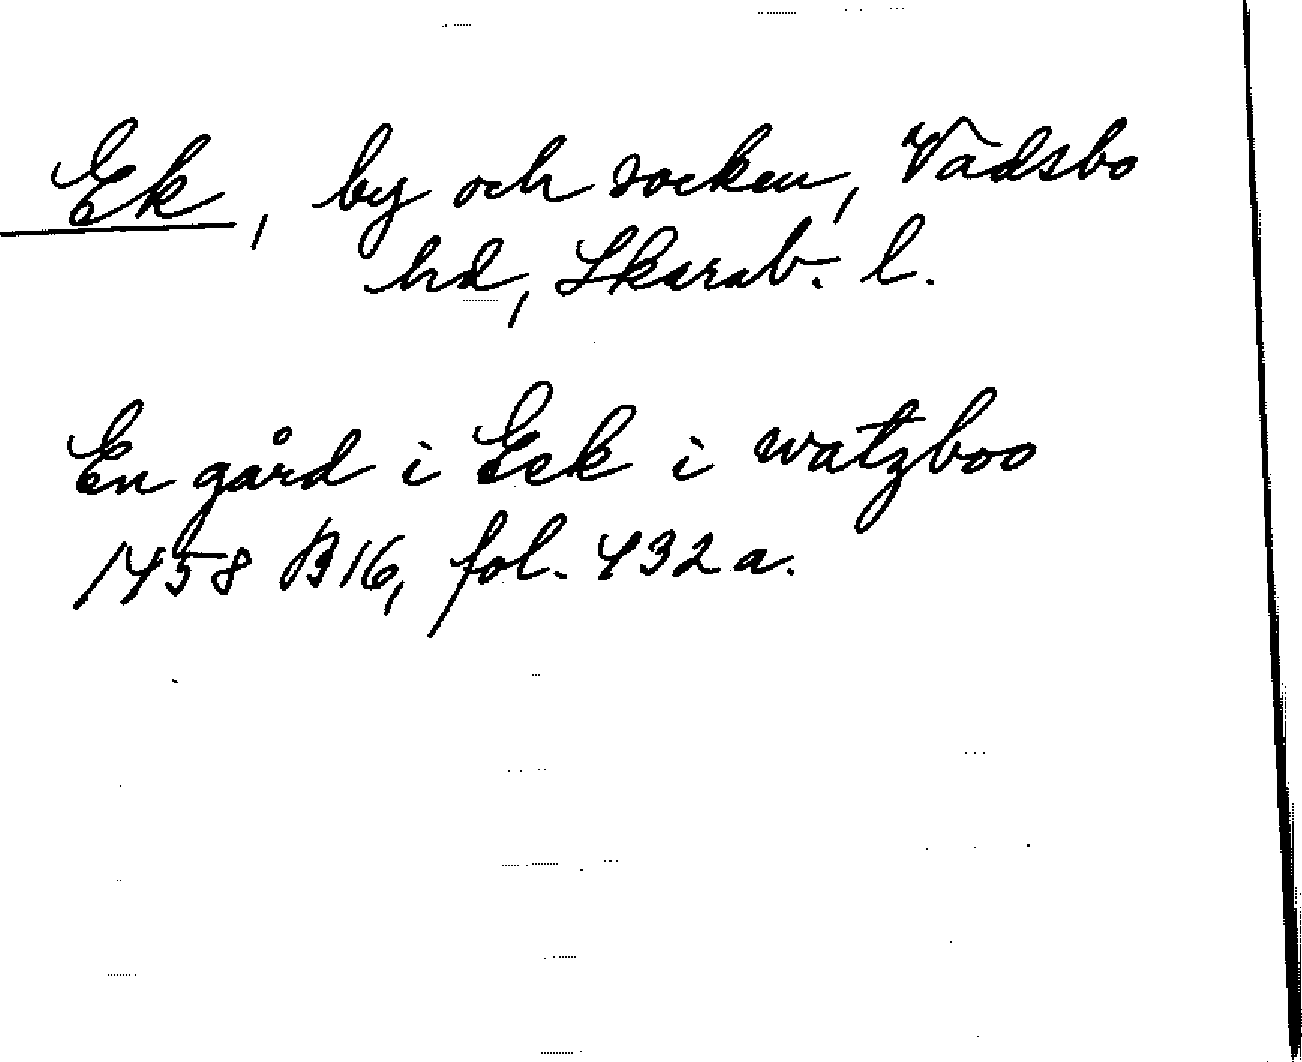 Ek, by och socken, Vadsbo
hd, Skarab. l.
En gård i Eek i watzboo
1458 B16, fol. 432 a.